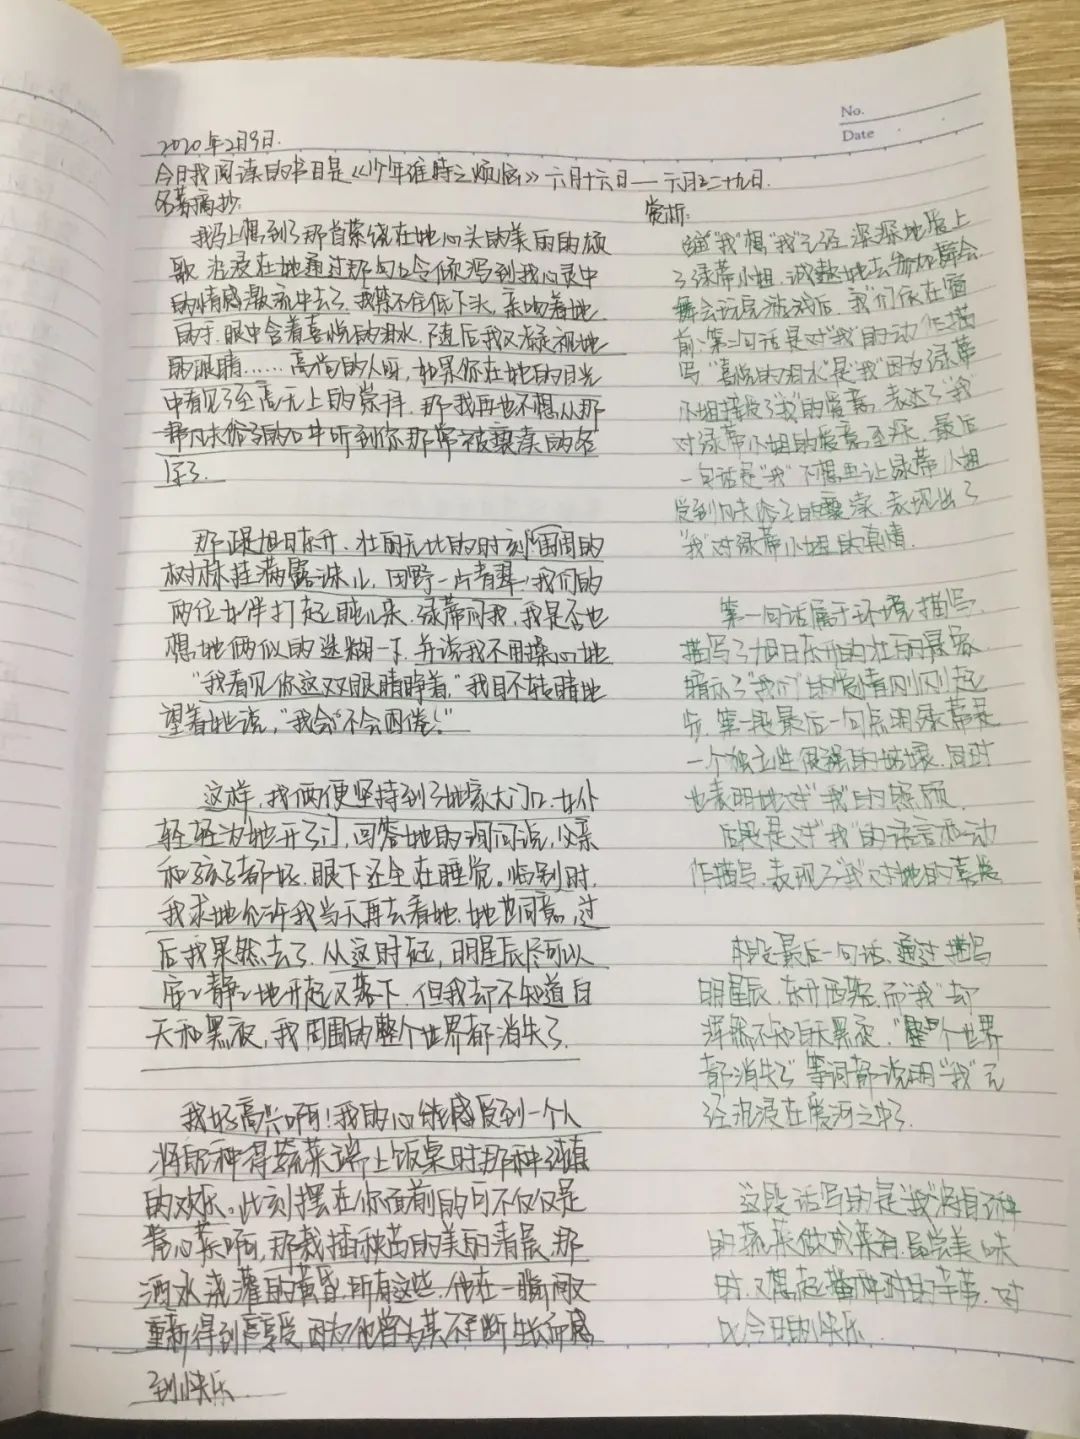 No.
Date
2020年2月9日.
今日我阅读的书目是《少年维特之烦恼》六月十六日——六月二十九日.
名著摘抄:
我马上想到了那首萦绕在她心头的美丽的颂
歌.沉浸在她通过那句口令倾泻到我心灵中
的情感激流中去了.我禁不住低下头,亲吻着她
的手.眼中含着喜悦的泪水.随后我又凝视她
的眼睛……高尚的人呀,如果你在她的目光
中看见了至高无上的崇拜.那我再也不想从那
帮凡夫俗子的口中听到你那常被亵渎的名
字了.
那正是旭日东升、壮丽无比的时刻!周围的
树林挂满露珠儿,田野一片青翠!我们的
两位女伴打起盹儿来.绿蒂问我,我是否也
想她俩似的迷糊一下.并说我不用操心她.
"我看见你这双眼睛睁着,"我目不转睛地
望着她说,"我会不会困倦!"
这样,我俩便坚持到了她家大门口.女仆
轻轻为她开了门,回答她的询问说,父亲
和孩子都好,眼下还全在睡觉。临别时.
我求她允许我当天再去看她.她也同意,过
后我果然去了.从这时起,日月星辰尽可以
安安静静地升起又落下,但我却不知道白
天和黑夜,我周围的整个世界都消失了.
我好高兴啊!我的心能感受到一个人
将自己种得蔬菜端上饭桌时那种纯真
的欢乐。此刻摆在你面前的可不仅仅是
卷心菜啊,那栽插秧苗的美丽清晨,那
洒水浇灌的黄昏.所有这些.他在一瞬间又
重新得到享受.因为他曾为其不断生长而感
到快乐.
赏析:
"我"想"我"已经深深地爱上
了绿蒂小姐,诚挚地去参加舞会.
舞会玩完游戏后,我们依在窗
前.第一句话是对"我"的动作描
写."喜悦的泪水"是"我"因为绿蒂
小姐接受了"我"的爱意,表达了"我"
对绿蒂小姐的爱意至深.最后
一句话是"我"不想再让绿蒂小姐
受到凡夫俗子的亵渎.表现出了
"我"对绿蒂小姐的真情.
第一句话属于环境描写.
描写了旭日东升的壮丽景象
暗示了"我们"的爱情刚刚起
步.第一段最后一句点明绿蒂是
一个独立性很强的姑娘.同时
也表明她对"我"的照顾.
后段是对"我"的语言和动
作描写.表现了"我"对她的喜爱
本段最后一句话,通过描写
日月星辰.东升西落,而"我"却
浑然不知白天黑夜."整个世界
都消失了"等词都说明"我"已
经沉浸在爱河之中了.
这段话写的是"我"将自己种
的蔬菜做成菜肴,品完美味
时.又想起播种时的辛劳.对
比今日的快乐.